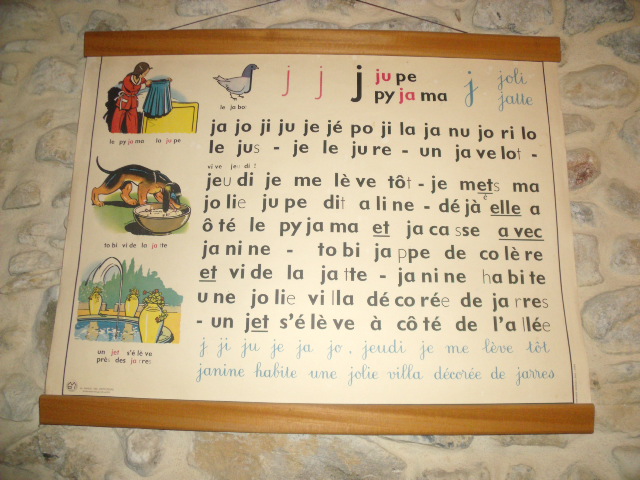 le jabot
j j j jupe
pyjama
j joli
jatte
le pyjama la jupe
ja jo ji ju je jé po ji la ja nu jo ri lo
le jus - je le jure - un javelot -
vive jeudi !
jeudi je me lève tôt - je mets ma
jolie jupe dit aline - déjà elle a
ôté le pyjama et jacasse avec
janine - tobi jappe de colère
et vide la jatte - janine habite
une jolie villa décorée de jarres
- un jet s'élève à côté de l'allée
tobi vide la jatte
un jet s'élève
près des jarres
j ji ju je ja jo, jeudi je me lève tôt
janine habite une jolie villa décorée de jarres